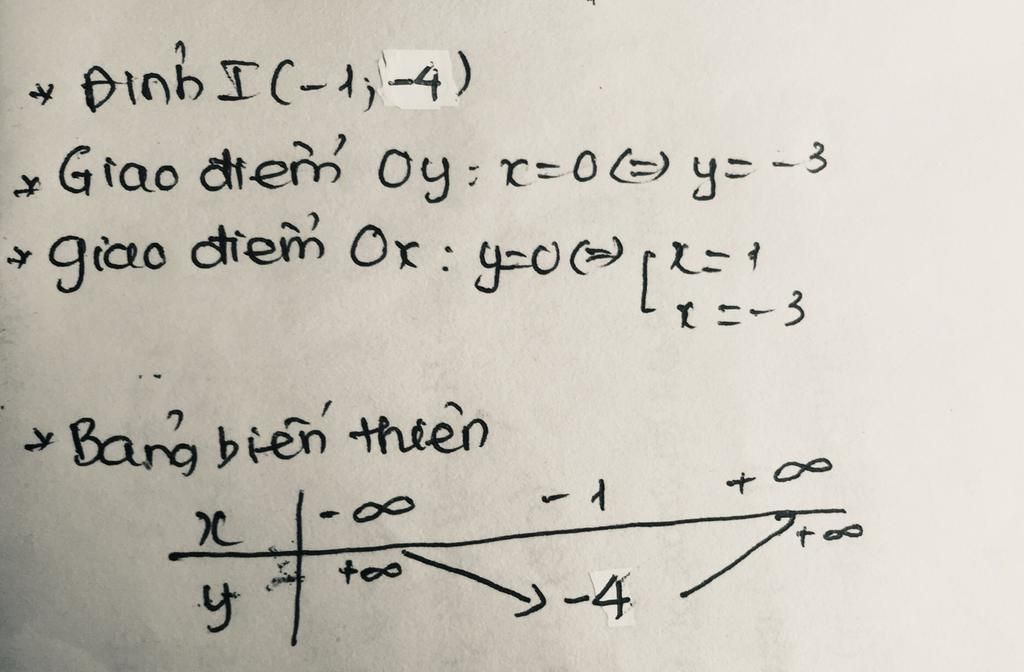 * Đỉnh I(-1; -4)
* Giao điểm Oy: x=0 (=) y= -3
* giao điểm Ox: y=0 (=) [ x= 1
x = -3
* Bảng biến thiên
x | -∞ -1 +∞
y | +∞ -4 +∞